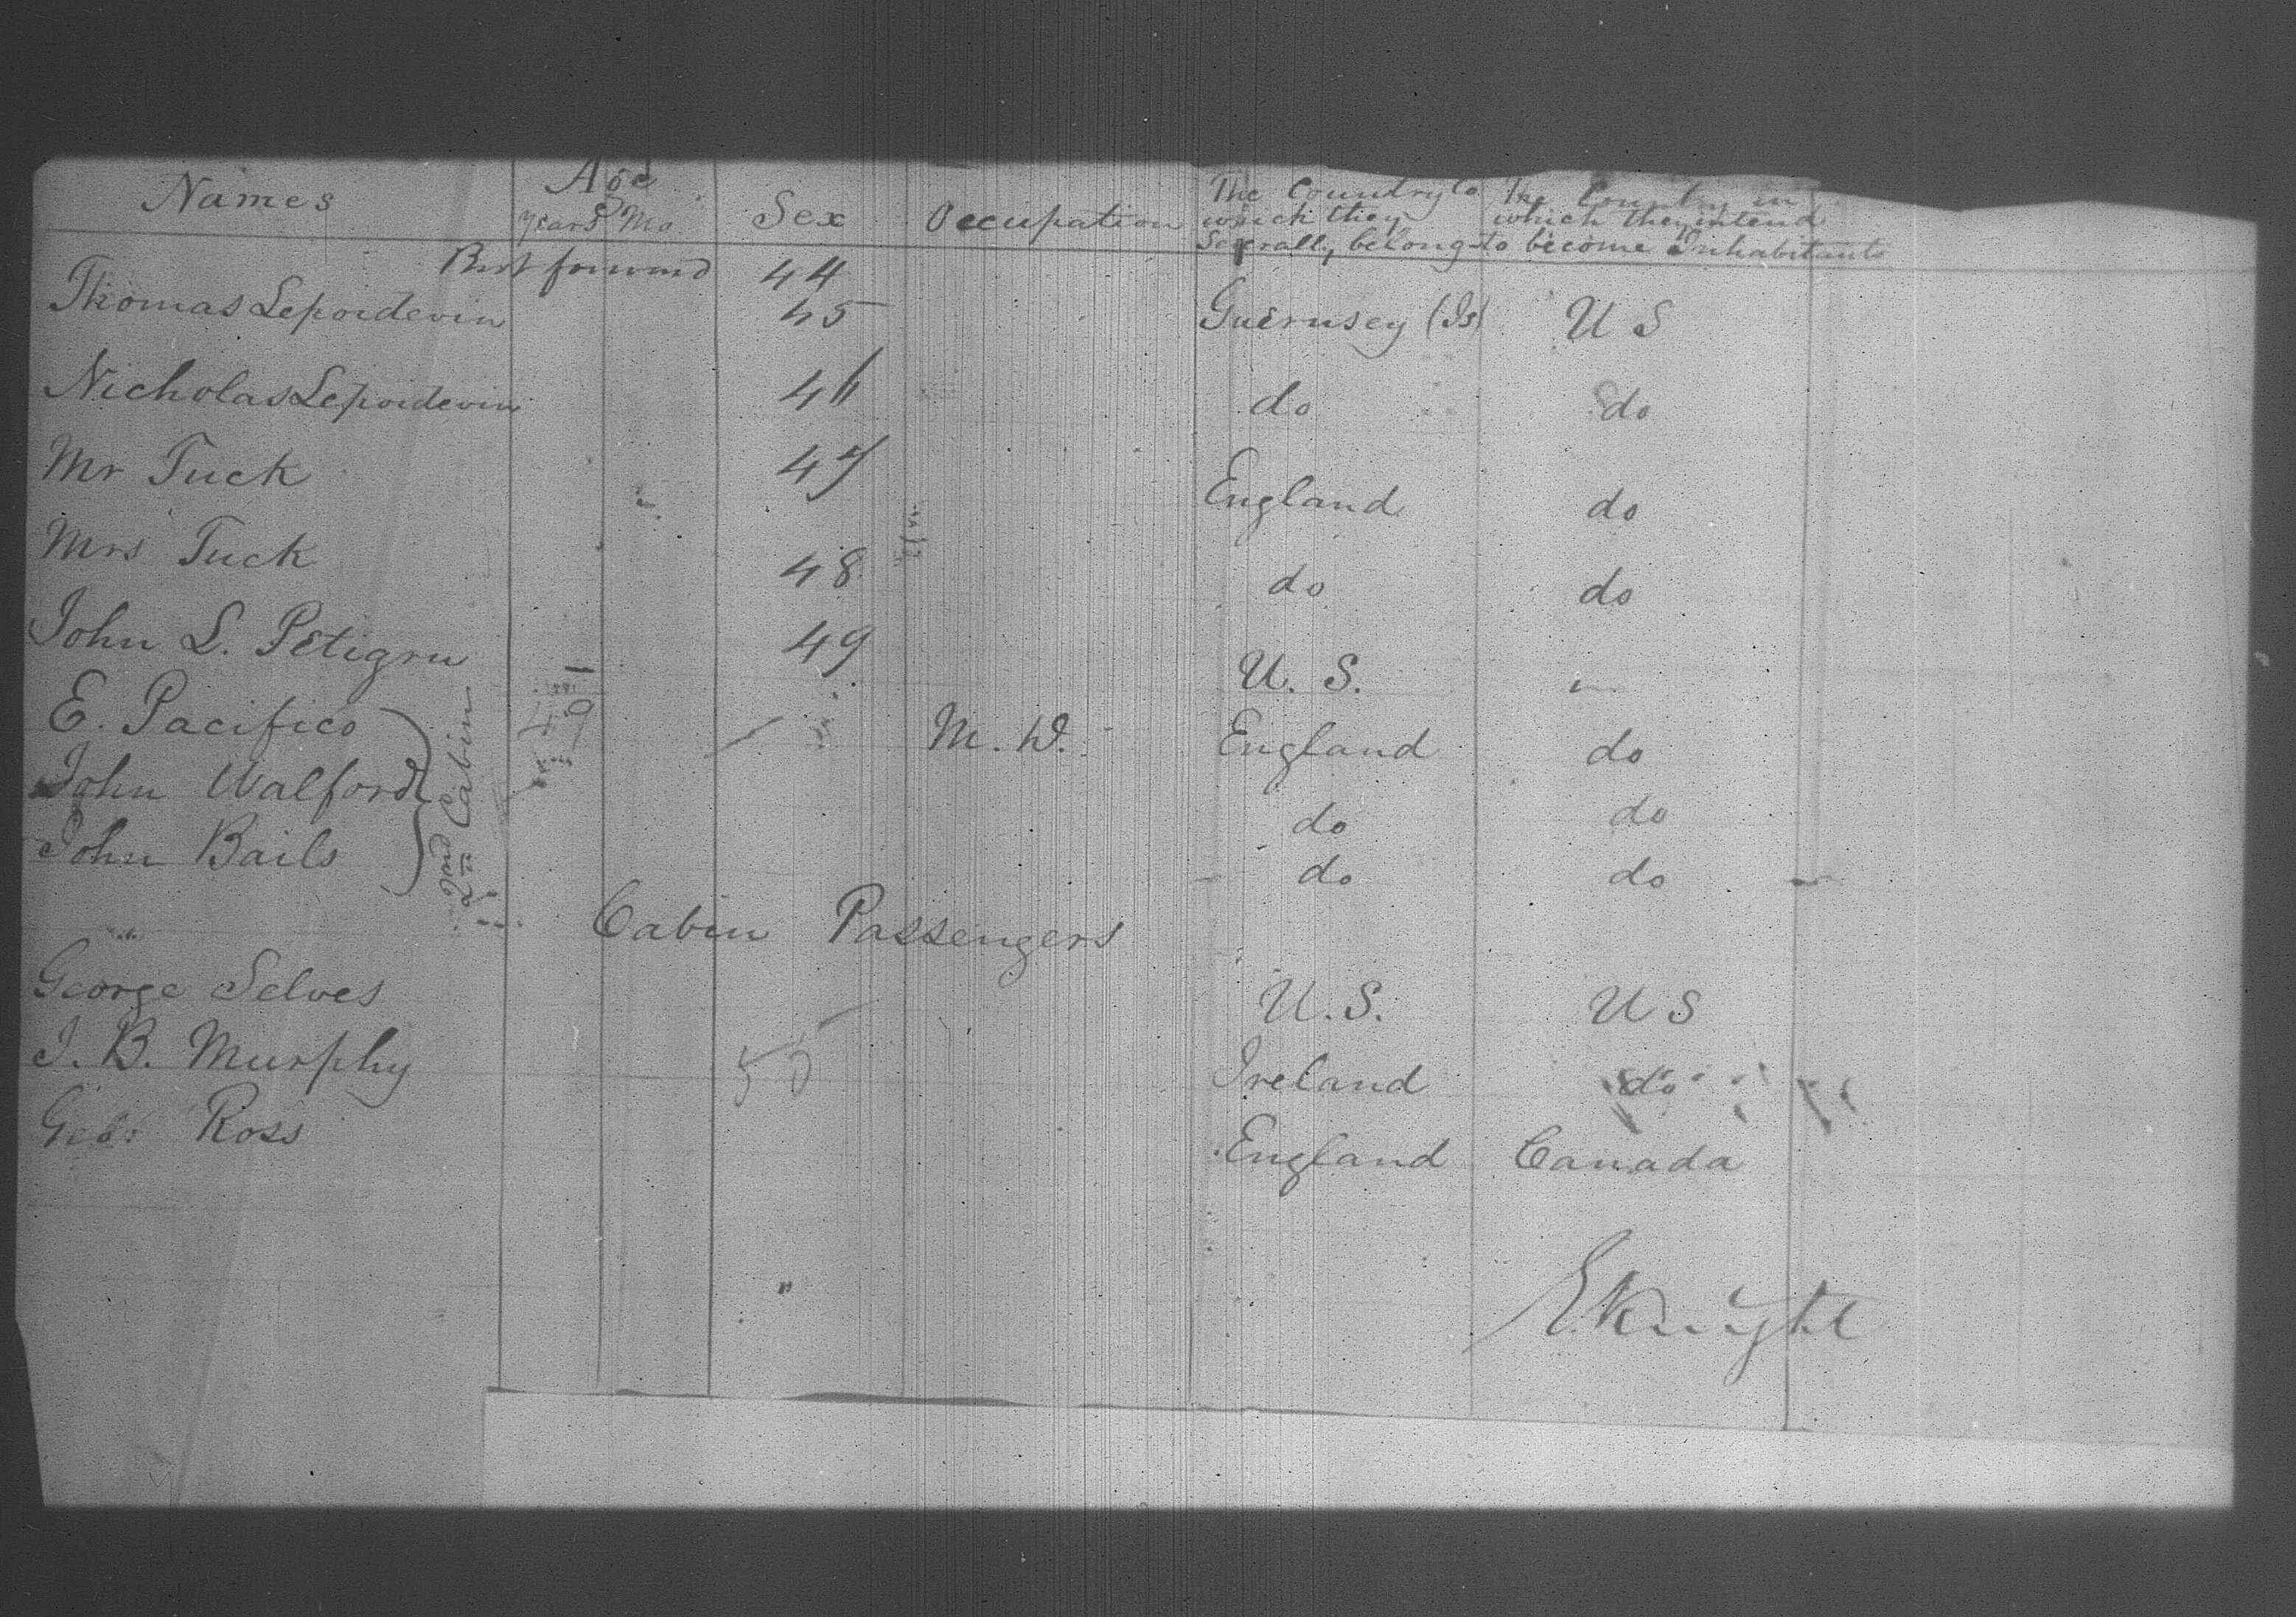 Names Age Sex Occupation The Country to The Country in
Years Mo which they which they intend
Severally belong to become Inhabitants
Brot forward 44
Thomas Lepoidevin 45 Guernsey (Is) U S
Nicholas Lepoidevin 46 do do
Mr Tuck 47 England do
Mrs Tuck 48 do do
John L. Petigru 49 U. S. "
E. Pacifico 49 M. W. England do
John Walford do do
John Bails do do
2nd Cabin
Cabin Passengers
George Selves U. S. U S
J. B. Murphy 50 Ireland do
Geo: Ross England Canada
E. Knight